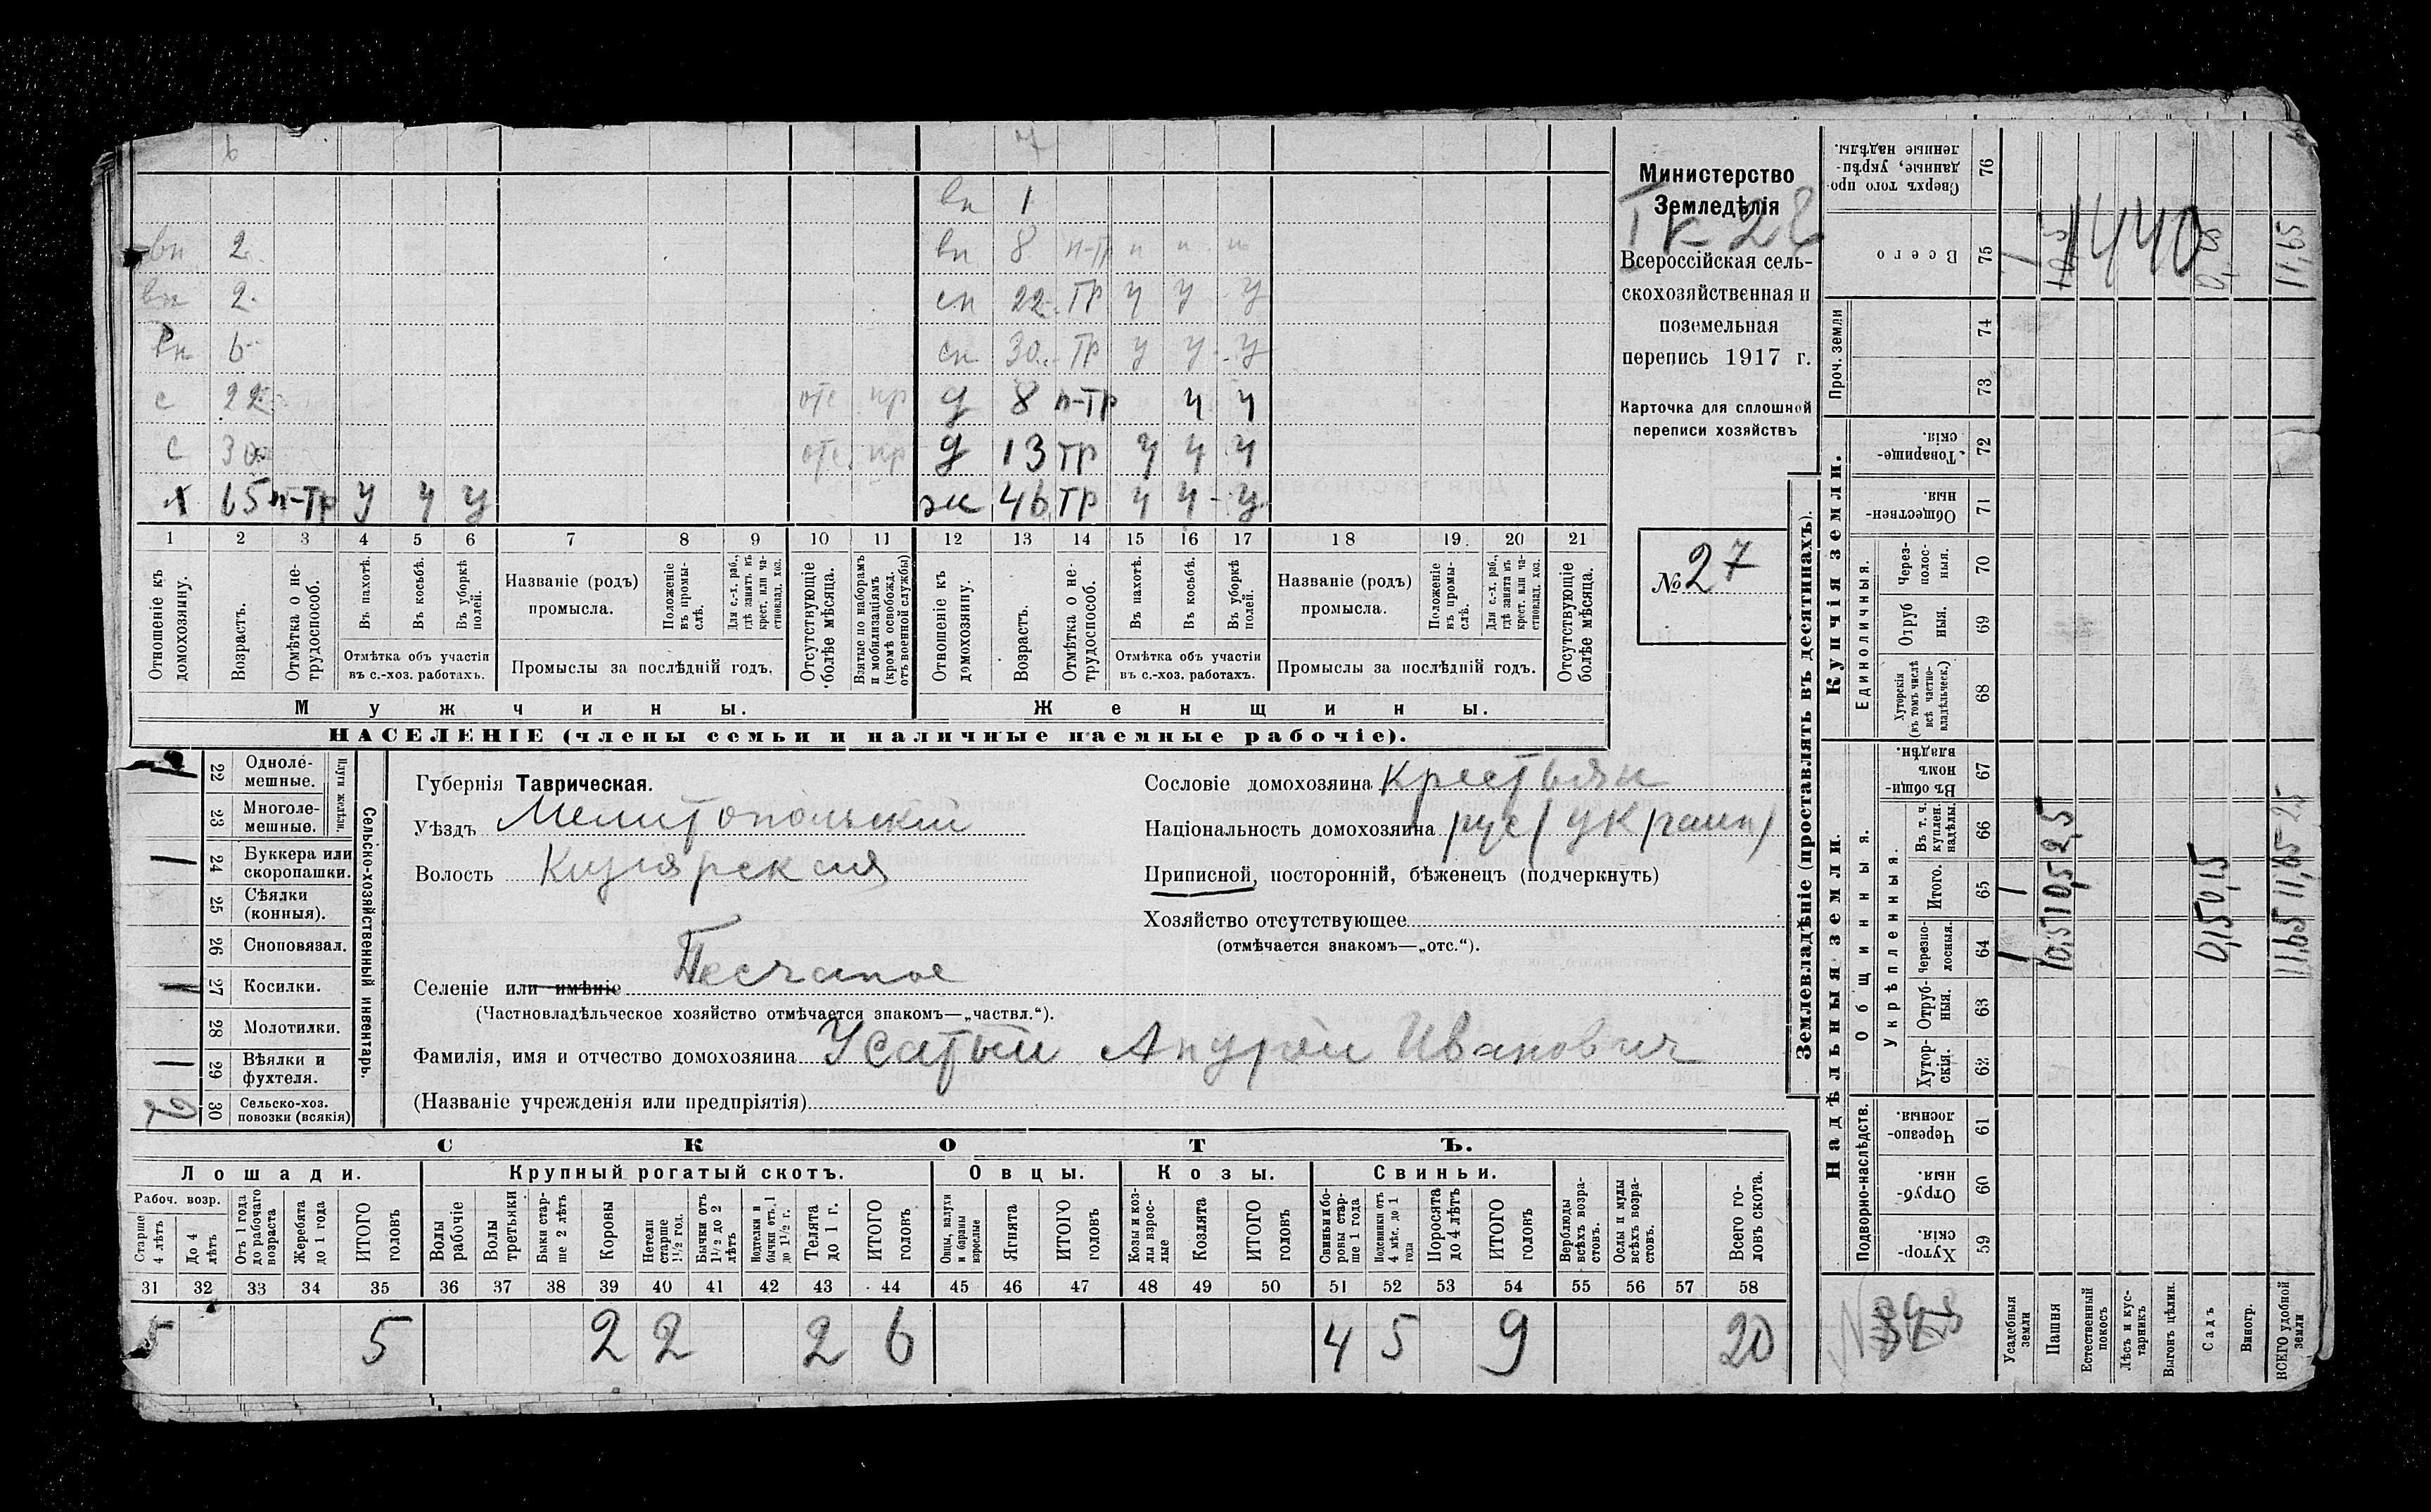 6 7
вн 1
вн 2 вн 8 п-тр п п п
вн 2 сн 22 тр у у у
вн 6 сн 30 тр у у у
с 22 отс пр д 8 п-тр у у
с 30 отс пр д 13 тр у у у
х 65 п-тр у у у ж 46 тр у у у
1 2 3 4 5 6 7 8 9 10 11 12 13 14 15 16 17 18 19. 20 21
Отношеніе къ домохозяину.
Возрастъ.
Отмѣтка о нетрудоспособ.
Въ пахотѣ.
Въ косьбѣ.
Въ уборкѣ полей.
Отмѣтка объ участіи
въ с.-хоз. работахъ.
Названіе (родъ)
промысла.
Положеніе въ промыслѣ.
Для с.-х. раб., гдѣ занятъ въ крест. или частновлад. хоз.
Промыслы за послѣдній годъ.
Отсутствующіе болѣе мѣсяца.
Взятые по наборамъ и мобилизаціямъ (кромѣ освобожд. отъ военной службы)
Отношеніе къ домохозяину.
Возрастъ.
Отмѣтка о нетрудоспособ.
Въ пахотѣ.
Въ косьбѣ.
Въ уборкѣ полей.
Отмѣтка объ участіи
въ с.-хоз. работахъ.
Названіе (родъ)
промысла.
Положеніе въ промыслѣ.
Для с.-х. раб., гдѣ занята въ крест. или частновлад. хоз.
Промыслы за послѣдній годъ.
Отсутствующіе болѣе мѣсяца.
Мужчины. Женщины.
НАСЕЛЕНІЕ (члены семьи и наличные наемные рабочіе).
Министерство
Земледѣлія
Тк 28
Всероссійская сель-
скохозяйственная и
поземельная
перепись 1917 г.
Карточка для сплошной
переписи хозяйствъ
№ 27
Сельско-хозяйственный инвентарь.
Плуги желѣзн.
1 22 Однолемешные.
23 Многолемешные.
1 24 Буккера или скоропашки.
25 Сѣялки (конныя).
26 Сноповязал.
1 27 Косилки.
28 Молотилки.
1 29 Вѣялки и фухтеля.
2 30 Сельско-хоз. повозки (всякія)
Губернія Таврическая.
Уѣздъ Мелитопольскій
Волость Кизіярская
Селеніе или имѣніе Песчаное
(Частновладѣльческое хозяйство отмѣчается знакомъ—„частвл.“).
Фамилія, имя и отчество домохозяина Усатый Андрей Иванович
(Названіе учрежденія или предпріятія)
Сословіе домохозяина Крестьян
Національность домохозяина рус (украин)
Приписной, посторонній, бѣженецъ (подчеркнуть)
Хозяйство отсутствующее
(отмѣчается знакомъ—„отс.“).
СКОТЪ.
Лошади. Крупный рогатый скотъ. Овцы. Козы. Свиньи.
Рабоч. возр.
Старше 4 лѣтъ
До 4 лѣтъ
Отъ 1 года до рабочаго возраста
Жеребята до 1 года
ИТОГО головъ
Волы рабочіе
Волы третьяки
Быки старше 2 лѣтъ
Коровы
Нетели старше 1½ год.
Бычки отъ 1½ до 2 лѣтъ
Подтелки и бычки отъ 1 до 1½ г.
Телята до 1 г.
ИТОГО головъ
Овцы, валухи и бараны взрослые
Ягнята
ИТОГО головъ
Козы и козлы взрослые
Козлята
ИТОГО головъ
Свиньи и боровы старше 1 года
Подсвинки отъ 4 мѣс. до 1 года
Поросята до 4 лѣтъ
ИТОГО головъ
Верблюды всѣхъ возрастовъ.
Ослы и мулы всѣхъ возрастовъ.
Всего головъ скота.
31 32 33 34 35 36 37 38 39 40 41 42 43 44 45 46 47 48 49 50 51 52 53 54 55 56 57 58
5 5 2 2 2 6 4 5 9 20
Землевладѣніе (проставлять въ десятинахъ).
Купчія земли.
Надѣльныя земли.
Сверхъ того проданные, укрѣпленные надѣлы. 76
Всего 75 1 10,5 0,15 11,65
1440
Проч. земли 74
73
Товарищескія. 72
Общественныя. 71
Единоличныя.
Черезполосныя. 70
Отрубныя. 69
Хуторскія (въ томъ числѣ всѣ частновладѣльческ.) 68
Въ общинномъ владѣн. 67
Общинныя.
Укрѣпленныя.
Въ т. ч. куплен. надѣлы. 66 2,5 2,5
Итого. 65 1 10,5 0,15 11,65
Черезполосныя. 64 1 10,5 0,15 11,65
Отрубныя. 63
Хуторскія. 62
Подворно-наслѣдств.
Черезполосныя. 61
Отрубныя. 60
Хуторскія. 59
Усадебныя земли
Пашня
Естественный покосъ
Лѣсъ и кустарникъ
Выгонъ цѣлин.
Садъ
Виногр.
ВСЕГО удобной земли